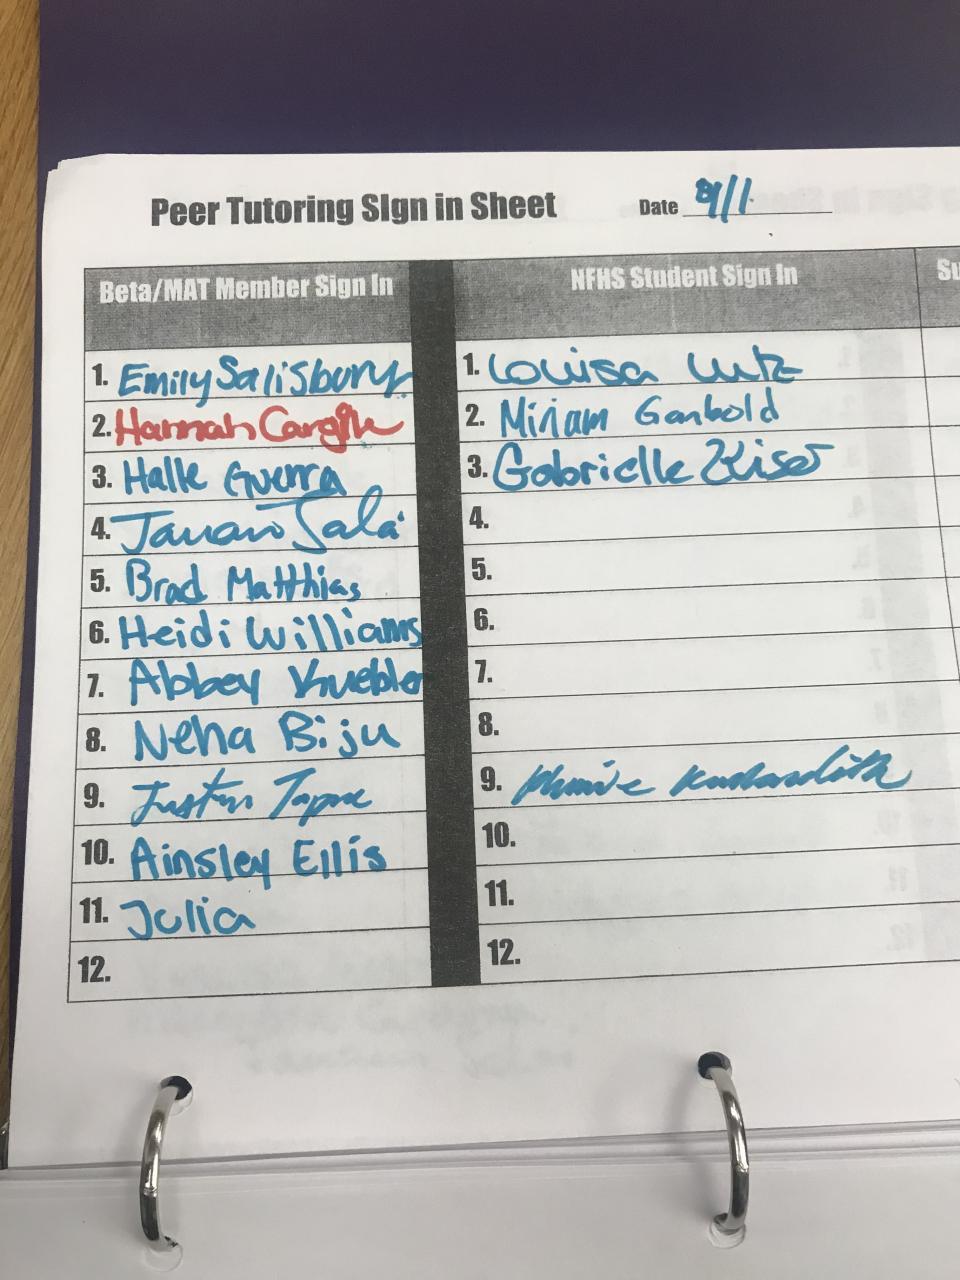 Peer Tutoring SIgn in Sheet Date 9/1
Beta/MAT Member Sign In NFHS Student Sign In Su
1. Emily Salisbury 1. Louisa Lutz
2. Hannah Cargile 2. Miriam Ganbold
3. Halle Guerra 3. Gabrielle Kiser
4. 4.
5. Brad Matthias 5.
6. Heidi Williams 6.
7. Abbey Kuebler 7.
8. Neha Biju 8.
9. Justin 9.
10. Ainsley Ellis 10.
11. Julia 11.
12. 12.